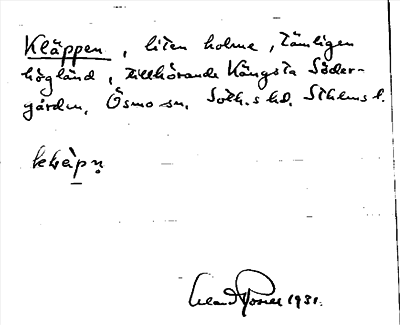 Kläppen, liten holme, tämligen
högländ, tillhörande Kängsta Söder-
gården, Ösmo sn, Soth.s hd. Sthlms l.
1931.